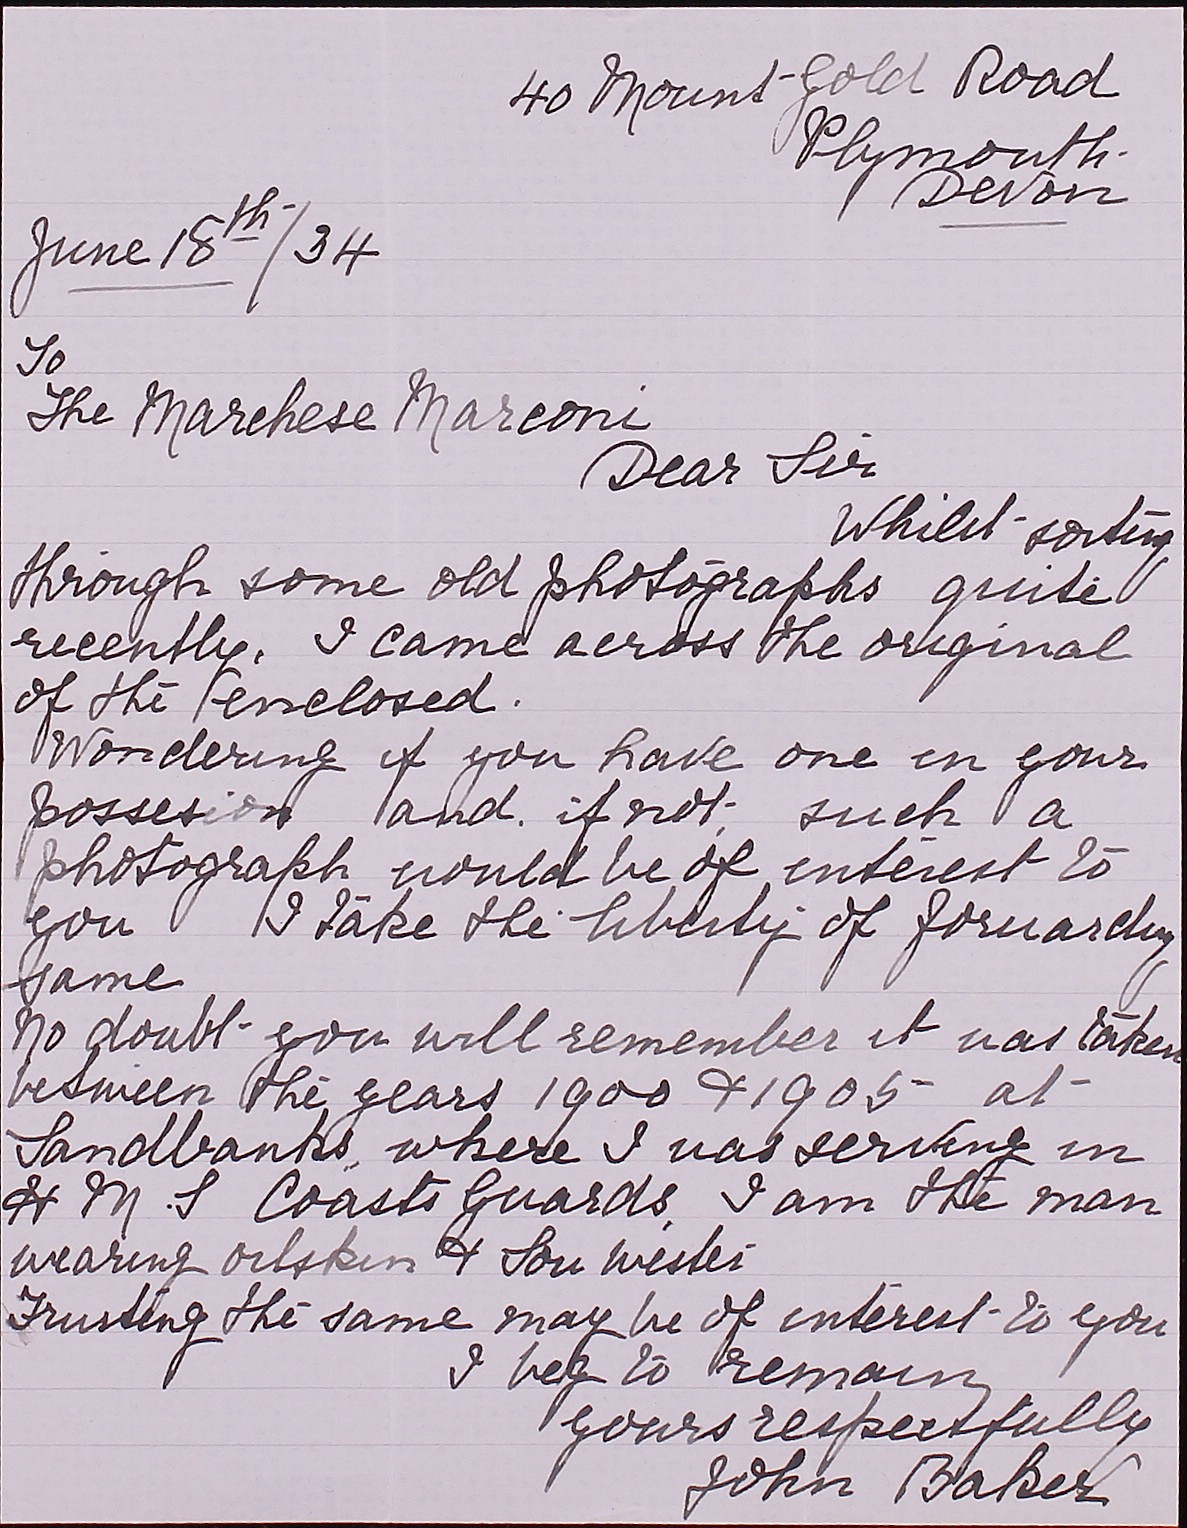 40 Mount-Gold Road
Plymouth.
Devon
June 18th/34
To
The Marchese Marconi
Dear Sir
Whilst sorting
through some old photographs quite
recently, I came across the original
of the enclosed.
Wondering if you have one in your
possesion and. if not, such a
photograph would be of interest to
you I take the liberty of forwarding
same
No doubt you will remember it was taken
between the years 1900 & 1905 at
Sandbanks, where I was serving in
H M.S Coasts Guards, I am the man
wearing oilskin & Sou Wester
Trusting the same may be of interest to you
I beg to remain
yours respectfully
John Baker